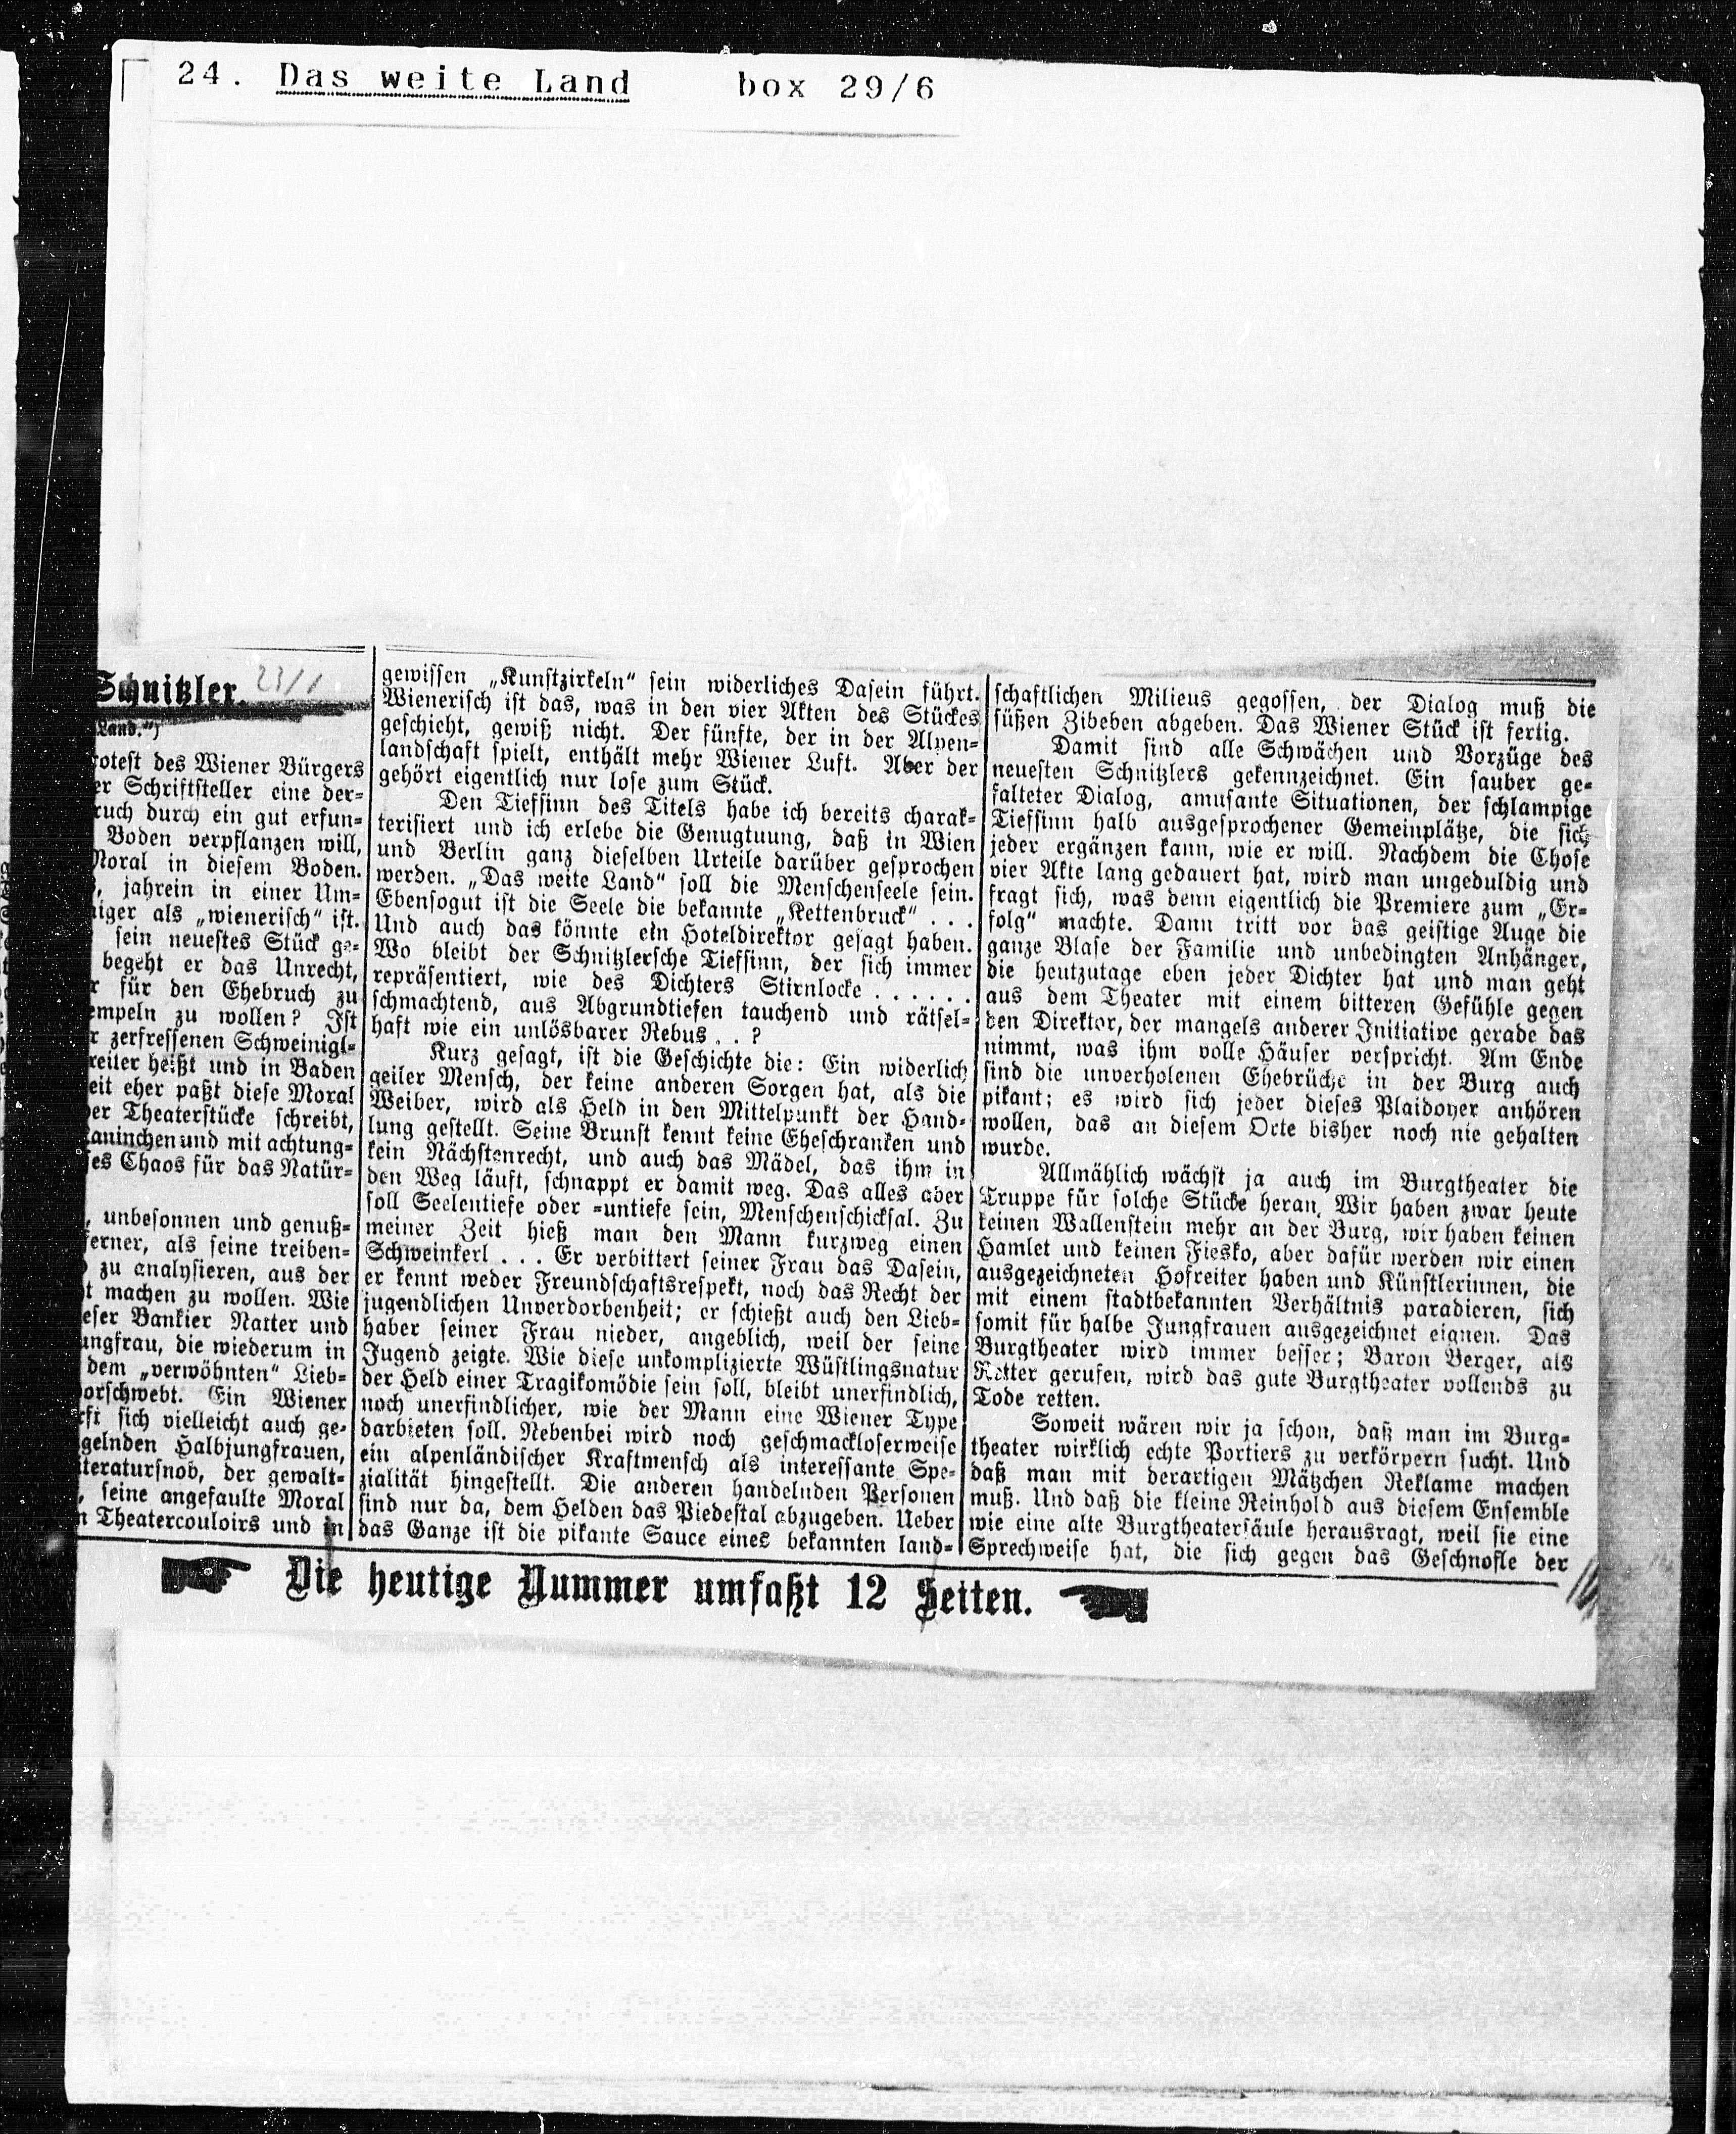 24. Das weite Land box 29/6
Schnitzler. 23/1
Land.")
rotest des Wiener Bürgers
er Schriftsteller eine der-
ruch durch ein gut erfun-
Boden verpflanzen will,
Moral in diesem Boden.
jahrein in einer Um-
niger als „wienerisch“ ist.
sein neuestes Stück ge-
begeht er das Unrecht,
r für den Ehebruch zu
empeln zu wollen? Ist
r zerfressenen Schweinigl-
reiter heißt und in Baden
eit eher paßt diese Moral
er Theaterstücke schreibt,
aninchen und mit achtung-
ses Chaos für das Natür-
, unbesonnen und genuß-
ferner, als seine treiben-
zu analysieren, aus der
t machen zu wollen. Wie
eser Bankier Natter und
ungfrau, die wiederum in
dem „verwöhnten“ Lieb-
orschwebt. Ein Wiener
eft sich vielleicht auch ge-
gelnden Halbjungfrauen,
iteratursnob, der gewalt-
, seine angefaulte Moral
n Theatercouloirs und in
gewissen „Kunstzirkeln“ sein widerliches Dasein führt.
Wienerisch ist das, was in den vier Akten des Stückes
geschieht, gewiß nicht. Der fünfte, der in der Alpen-
landschaft spielt, enthält mehr Wiener Luft. Aber der
gehört eigentlich nur lose zum Stück.
Den Tiefsinn des Titels habe ich bereits charak-
terisiert und ich erlebe die Genugtuung, daß in Wien
und Berlin ganz dieselben Urteile darüber gesprochen
werden. „Das weite Land“ soll die Menschenseele sein.
Ebensogut ist die Seele die bekannte „Kettenbruck“ . . .
Und auch das könnte ein Hoteldirektor gesagt haben.
Wo bleibt der Schnitzlersche Tiefsinn, der sich immer
repräsentiert, wie des Dichters Stirnlocke . . . . . .
schmachtend, aus Abgrundtiefen tauchend und rätsel-
haft wie ein unlösbarer Rebus . . ?
Kurz gesagt, ist die Geschichte die: Ein widerlich
geiler Mensch, der keine anderen Sorgen hat, als die
Weiber, wird als Held in den Mittelpunkt der Hand-
lung gestellt. Seine Brunst kennt keine Eheschranken und
kein Nächstenrecht, und auch das Mädel, das ihm in
den Weg läuft, schnappt er damit weg. Das alles aber
soll Seelentiefe oder =untiefe sein, Menschenschicksal. Zu
meiner Zeit hieß man den Mann kurzweg einen
Schweinkerl . . . Er verbittert seiner Frau das Dasein,
er kennt weder Freundschaftsrespekt, noch das Recht der
jugendlichen Unverdorbenheit; er schießt auch den Lieb-
haber seiner Frau nieder, angeblich, weil der seine
Jugend zeigte. Wie diese unkomplizierte Wüstlingsnatur
der Held einer Tragikomödie sein soll, bleibt unerfindlich,
noch unerfindlicher, wie der Mann eine Wiener Type
darbieten soll. Nebenbei wird noch geschmackloserweise
ein alpenländischer Kraftmensch als interessante Spe-
zialität hingestellt. Die anderen handelnden Personen
sind nur da, dem Helden das Piedestal abzugeben. Ueber
das Ganze ist die pikante Sauce eines bekannten land-
schaftlichen Milieus gegossen, der Dialog muß die
süßen Zibeben abgeben. Das Wiener Stück ist fertig.
Damit sind alle Schwächen und Vorzüge des
neuesten Schnitzlers gekennzeichnet. Ein sauber ge-
falteter Dialog, amusante Situationen, der schlampige
Tiefsinn halb ausgesprochener Gemeinplätze, die sich
jeder ergänzen kann, wie er will. Nachdem die Chose
vier Akte lang gedauert hat, wird man ungeduldig und
fragt sich, was denn eigentlich die Premiere zum „Er-
folg“ machte. Dann tritt vor das geistige Auge die
ganze Blase der Familie und unbedingten Anhänger,
die heutzutage eben jeder Dichter hat und man geht
aus dem Theater mit einem bitteren Gefühle gegen
den Direktor, der mangels anderer Initiative gerade das
nimmt, was ihm volle Häuser verspricht. Am Ende
sind die unverholenen Ehebrüche in der Burg auch
pikant; es wird sich jeder dieses Plaidoyer anhören
wollen, das an diesem Orte bisher noch nie gehalten
wurde.
Allmählich wächst ja auch im Burgtheater die
Truppe für solche Stücke heran. Wir haben zwar heute
keinen Wallenstein mehr an der Burg, wir haben keinen
Hamlet und keinen Fiesko, aber dafür werden wir einen
ausgezeichneten Hofreiter haben und Künstlerinnen, die
mit einem stadtbekannten Verhältnis paradieren, sich
somit für halbe Jungfrauen ausgezeichnet eignen. Das
Burgtheater wird immer besser; Baron Berger, als
Retter gerufen, wird das gute Burgtheater vollends zu
Tode retten.
Soweit wären wir ja schon, daß man im Burg-
theater wirklich echte Portiers zu verkörpern sucht. Und
daß man mit derartigen Mätzchen Reklame machen
muß. Und daß die kleine Reinhold aus diesem Ensemble
wie eine alte Burgtheatersäule herausragt, weil sie eine
Sprechweise hat, die sich gegen das Geschnofle der
Die heutige Nummer umfaßt 12 Seiten.